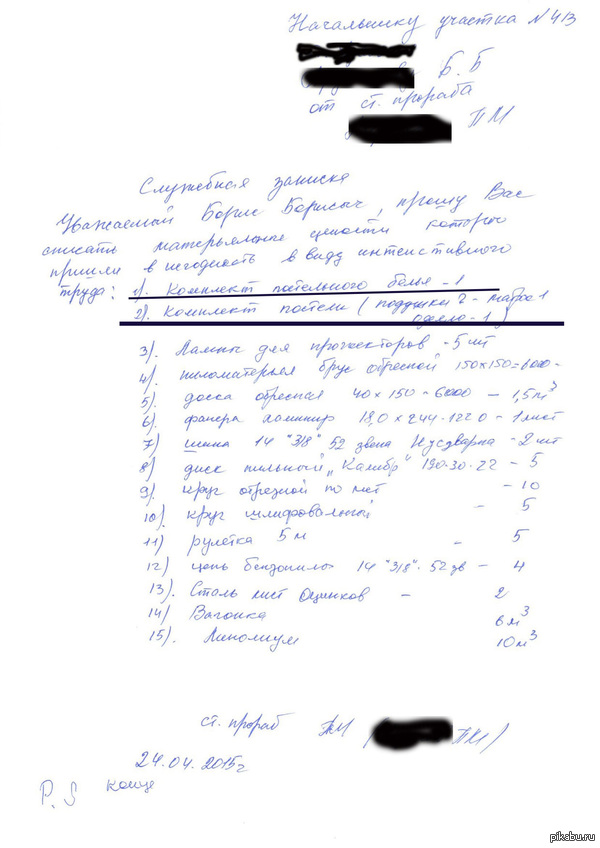 Начальнику участка № 413
Б.Б
от ст. прораба
ПМ
Служебная записка
Уважаемый Борис Борисыч, прошу Вас
списать матерьяльные цености которые
пришли в негодность в виду интенстивного
труда: 1). Комплект постельного белья - 1
2). Комплект постели (подушки 2 - матрос 1
одело - 1)
3). Лампы для прожекторов - 5 шт
4). пиломатерьял брус обрезной 150х150=6000-
5) доска обрезная 40 х 150 - 6000 - 1,5м³
6) фанера ламинир 18,0 х 244-1220 - 1 лист
7) шина 14 "3/8" 52 звена Хусдварна - 2 шт
8) диск пильный „Калибр" 190-30-22 - 5
9) круг отрезной по мет - 10
10) круг шлифовальный - 5
11) рулетка 5 м - 5
12) цепь бензопилы 14 "3/8"-52 зв - 4
13). Сталь лист Оцинков - 2
14) Вагонка 6 м³
15). Линолиум 10 м³
ст. прораб ПМ ( ПМ)
24.04.2015г
P.S
pikabu.ru